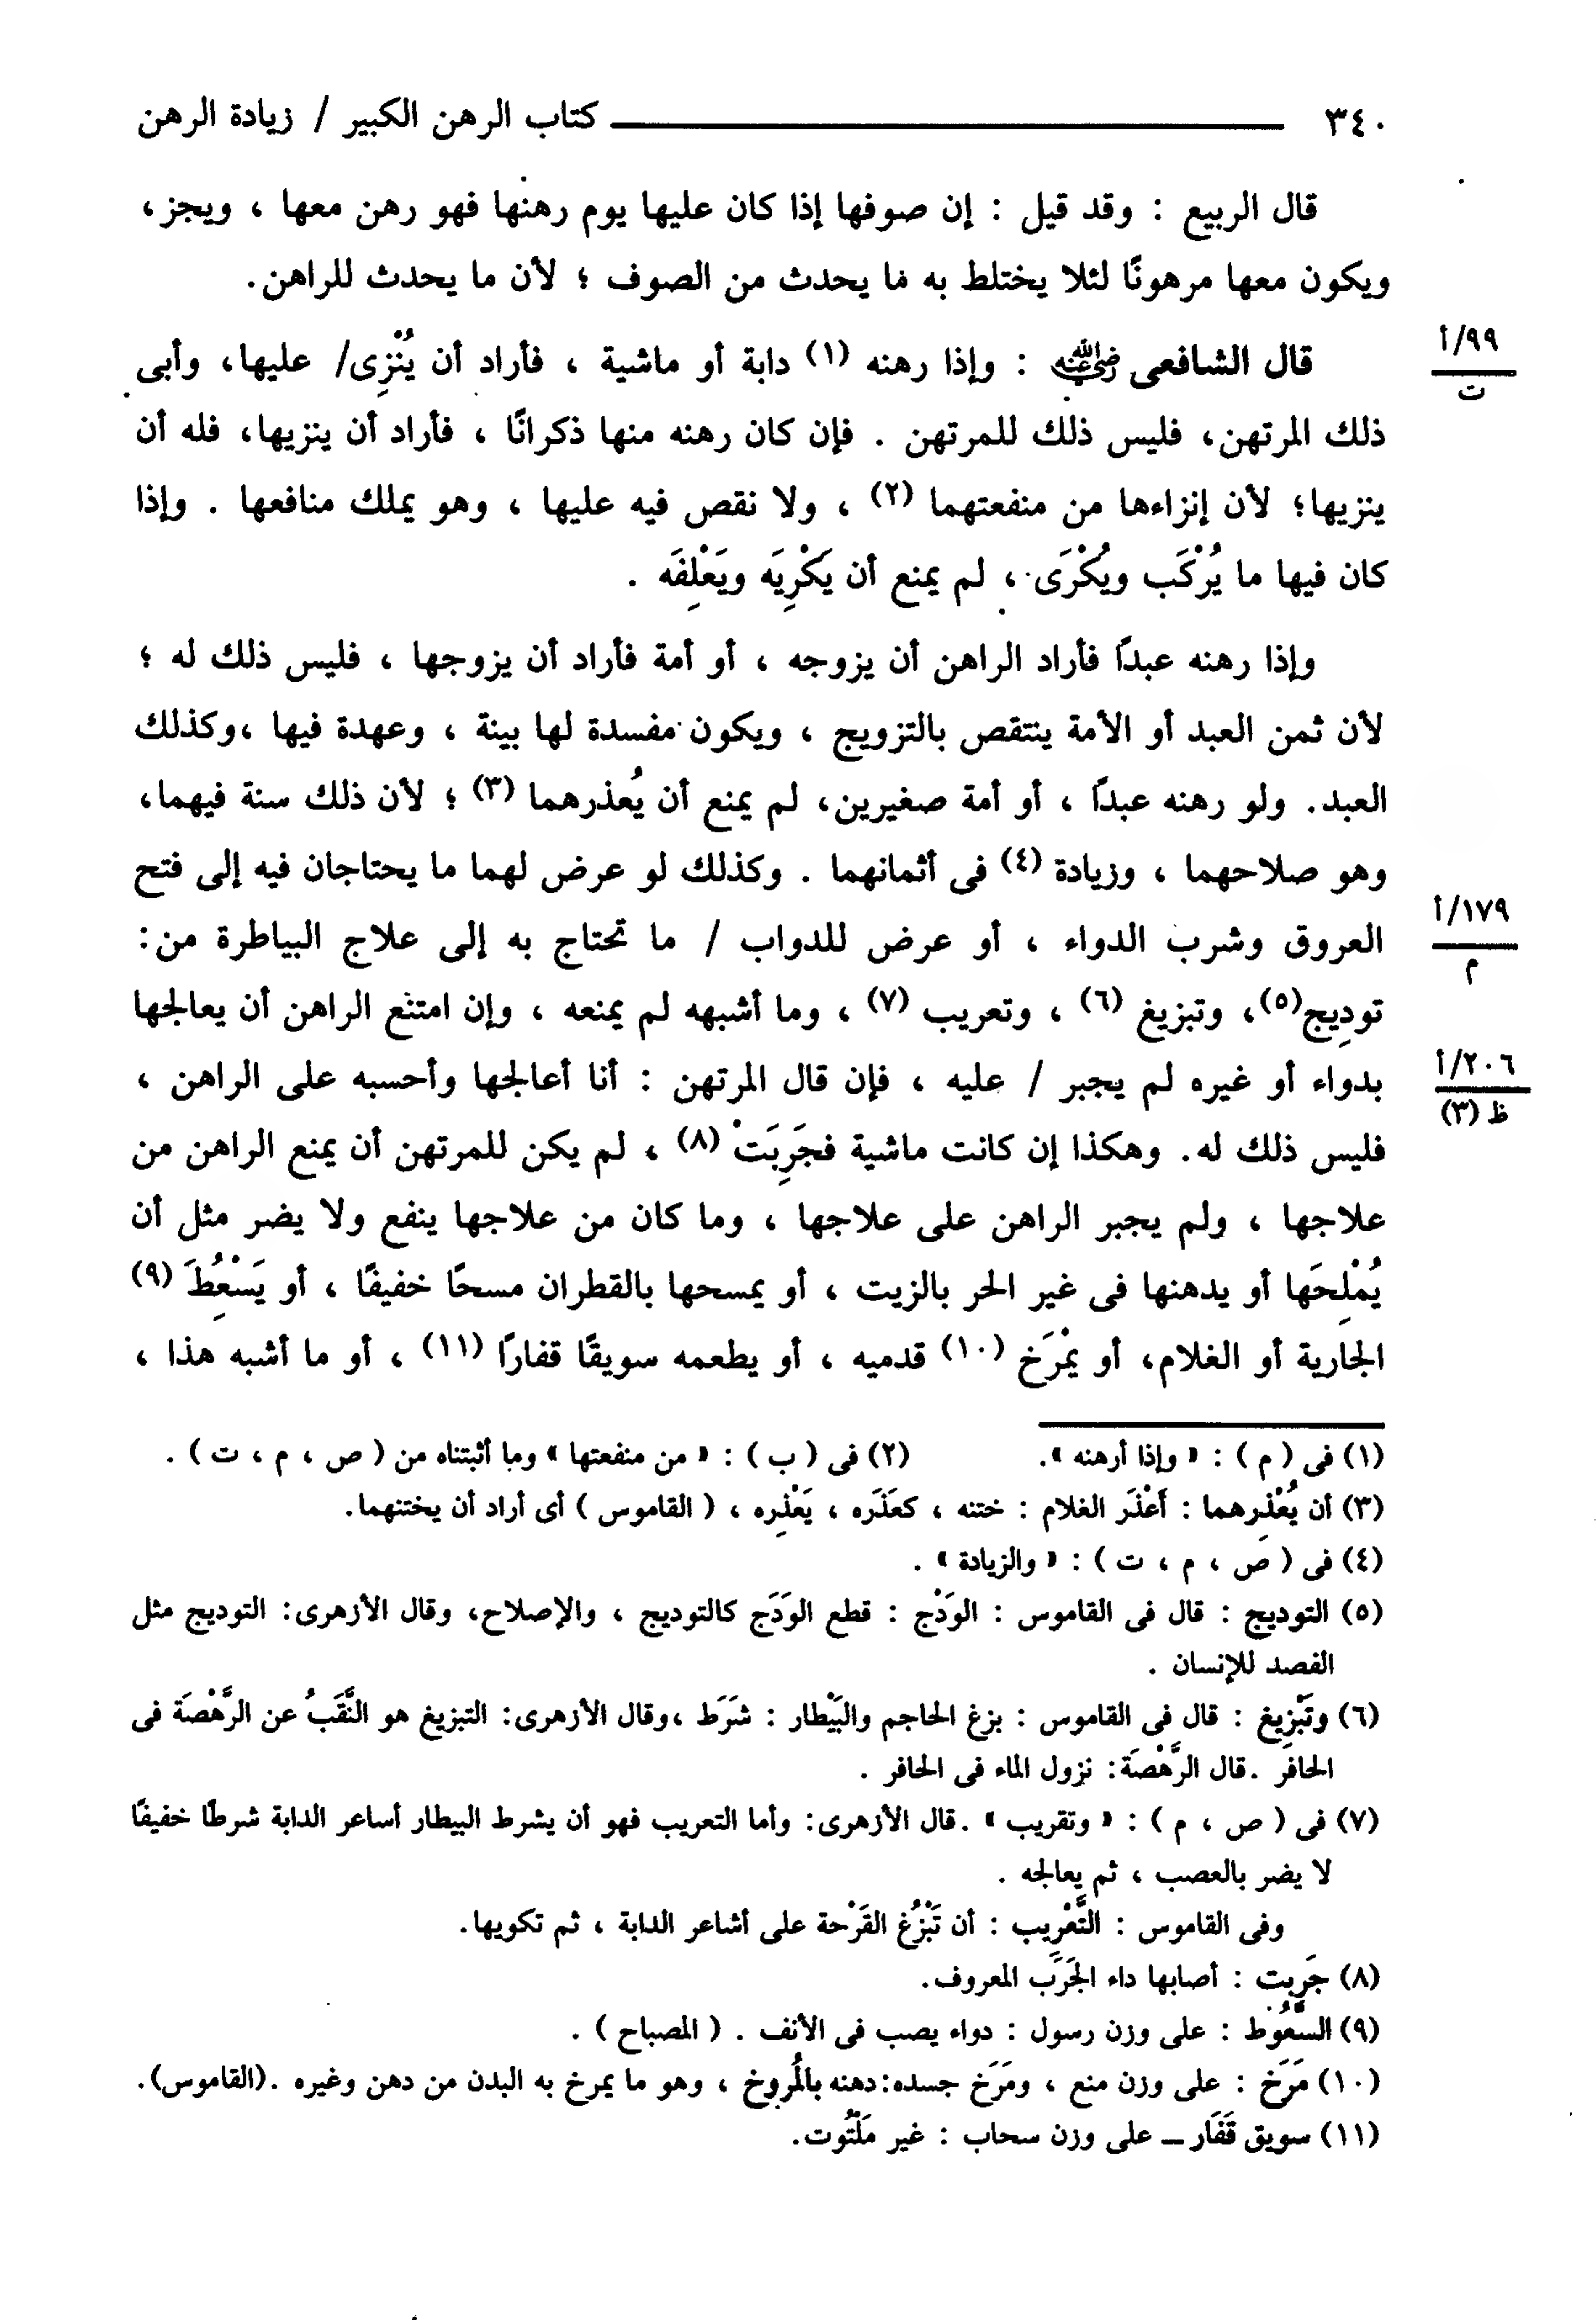 ٣٤٠ ــــــــــ كتاب الرهن الكبير / زيادة الرهن
قال الربيع : وقد قيل : إن صوفها إذا كان عليها يوم رهنها فهو رهن معها ، ويجز ،
ويكون معها مرهونًا لئلا يختلط به ما يحدث من الصوف ؛ لأن ما يحدث للراهن .
قال الشافعى رضي الله عنه : وإذا رهنه (١) دابة أو ماشية ، فأراد أن يُنْزِى/ عليها، وأبى
٩٩/أ
ت
ذلك المرتهن، فليس ذلك للمرتهن . فإن كان رهنه منها ذكرانًا ، فأراد أن ينزيها، فله أن
ينزيها؛ لأن إنزاءها من منفعتهما (٢) ، ولا نقص فيه عليها ، وهو يملك منافعها . وإذا
كان فيها ما يُرْكَب ويُكْرَى ، لم يمنع أن يَكْرِيَه ويَعْلِفَه .
وإذا رهنه عبداً فأراد الراهن أن يزوجه ، أو أمة فأراد أن يزوجها ، فليس ذلك له ؛
لأن ثمن العبد أو الأمة ينتقص بالتزويج ، ويكون مفسدة لها بينة ، وعهدة فيها ،وكذلك
العبد. ولو رهنه عبداً ، أو أمة صغيرين، لم يمنع أن يُعذرهما (٣) ؛ لأن ذلك سنة فيهما،
وهو صلاحهما ، وزيادة (٤) فى أثمانهما . وكذلك لو عرض لهما ما يحتاجان فيه إلى فتح
العروق وشرب الدواء ، أو عرض للدواب / ما تحتاج به إلى علاج البياطرة من:
١٧٩/أ
م
توديج(٥)، وتبزيغ (٦) ، وتعريب (٧) ، وما أشبهه لم يمنعه ، وإن امتنع الراهن أن يعالجها
بدواء أو غيره لم يجبر / عليه ، فإن قال المرتهن : أنا أعالجها وأحسبه على الراهن ،
٢٠٦/أ
ظ (٣)
فليس ذلك له. وهكذا إن كانت ماشية فجَرِبَتْ (٨) ، لم يكن للمرتهن أن يمنع الراهن من
علاجها ، ولم يجبر الراهن على علاجها ، وما كان من علاجها ينفع ولا يضر مثل أن
يُمْلِحَها أو يدهنها فى غير الحر بالزيت ، أو يمسحها بالقطران مسحًا خفيفًا ، أو يَسْعُطَ (٩)
الجارية أو الغلام، أو يمْرَخ (١٠) قدميه ، أو يطعمه سويقًا قفارًا (١١) ، أو ما أشبه هذا ،
(١) فى ( م ) : « وإذا أرهنه ». (٢) فى ( ب ) : « من منفعتها » وما أثبتناه من ( ص ، م ، ت ) .
(٣) أن يُعْذِرهما : أَعْذَر الغلام : ختنه ، كعَذَره ، يَعْذِره ، ( القاموس ) أى أراد أن يختنهما.
(٤) فى ( ص ، م ، ت ) : « والزيادة » .
(٥) التوديج : قال فى القاموس : الوَدْج : قطع الوَدَج كالتوديج ، والإصلاح، وقال الأزهرى: التوديج مثل
الفصد للإنسان .
(٦) وتَبْزِيغ : قال فى القاموس : بزغ الحاجم والبَيْطار : شَرَط ،وقال الأزهرى: التبزيغ هو النَّقَبُ عن الرَّهْصَة فى
الحافر .قال الرَّهْصَة: نزول الماء فى الحافر .
(٧) فى ( ص ، م ) : « وتقريب » .قال الأزهرى: وأما التعريب فهو أن يشرط البيطار أساعر الدابة شرطًا خفيفًا
لا يضر بالعصب ، ثم يعالجه .
وفى القاموس : التَّعْرِيب : أن تَبْزُغ القَرْحة على أشاعر الدابة ، ثم تكويها.
(٨) جَرِبت : أصابها داء الجَرَب المعروف.
(٩) السَّعُوط : على وزن رسول : دواء يصب فى الأنف . ( المصباح ) .
(١٠) مَرَخ : على وزن منع ، ومَرَخ جسده:دهنه بالمُروخ ، وهو ما يمرخ به البدن من دهن وغيره .(القاموس).
(١١) سويق قَفَار ــ على وزن سحاب : غير مَلْتُوت.